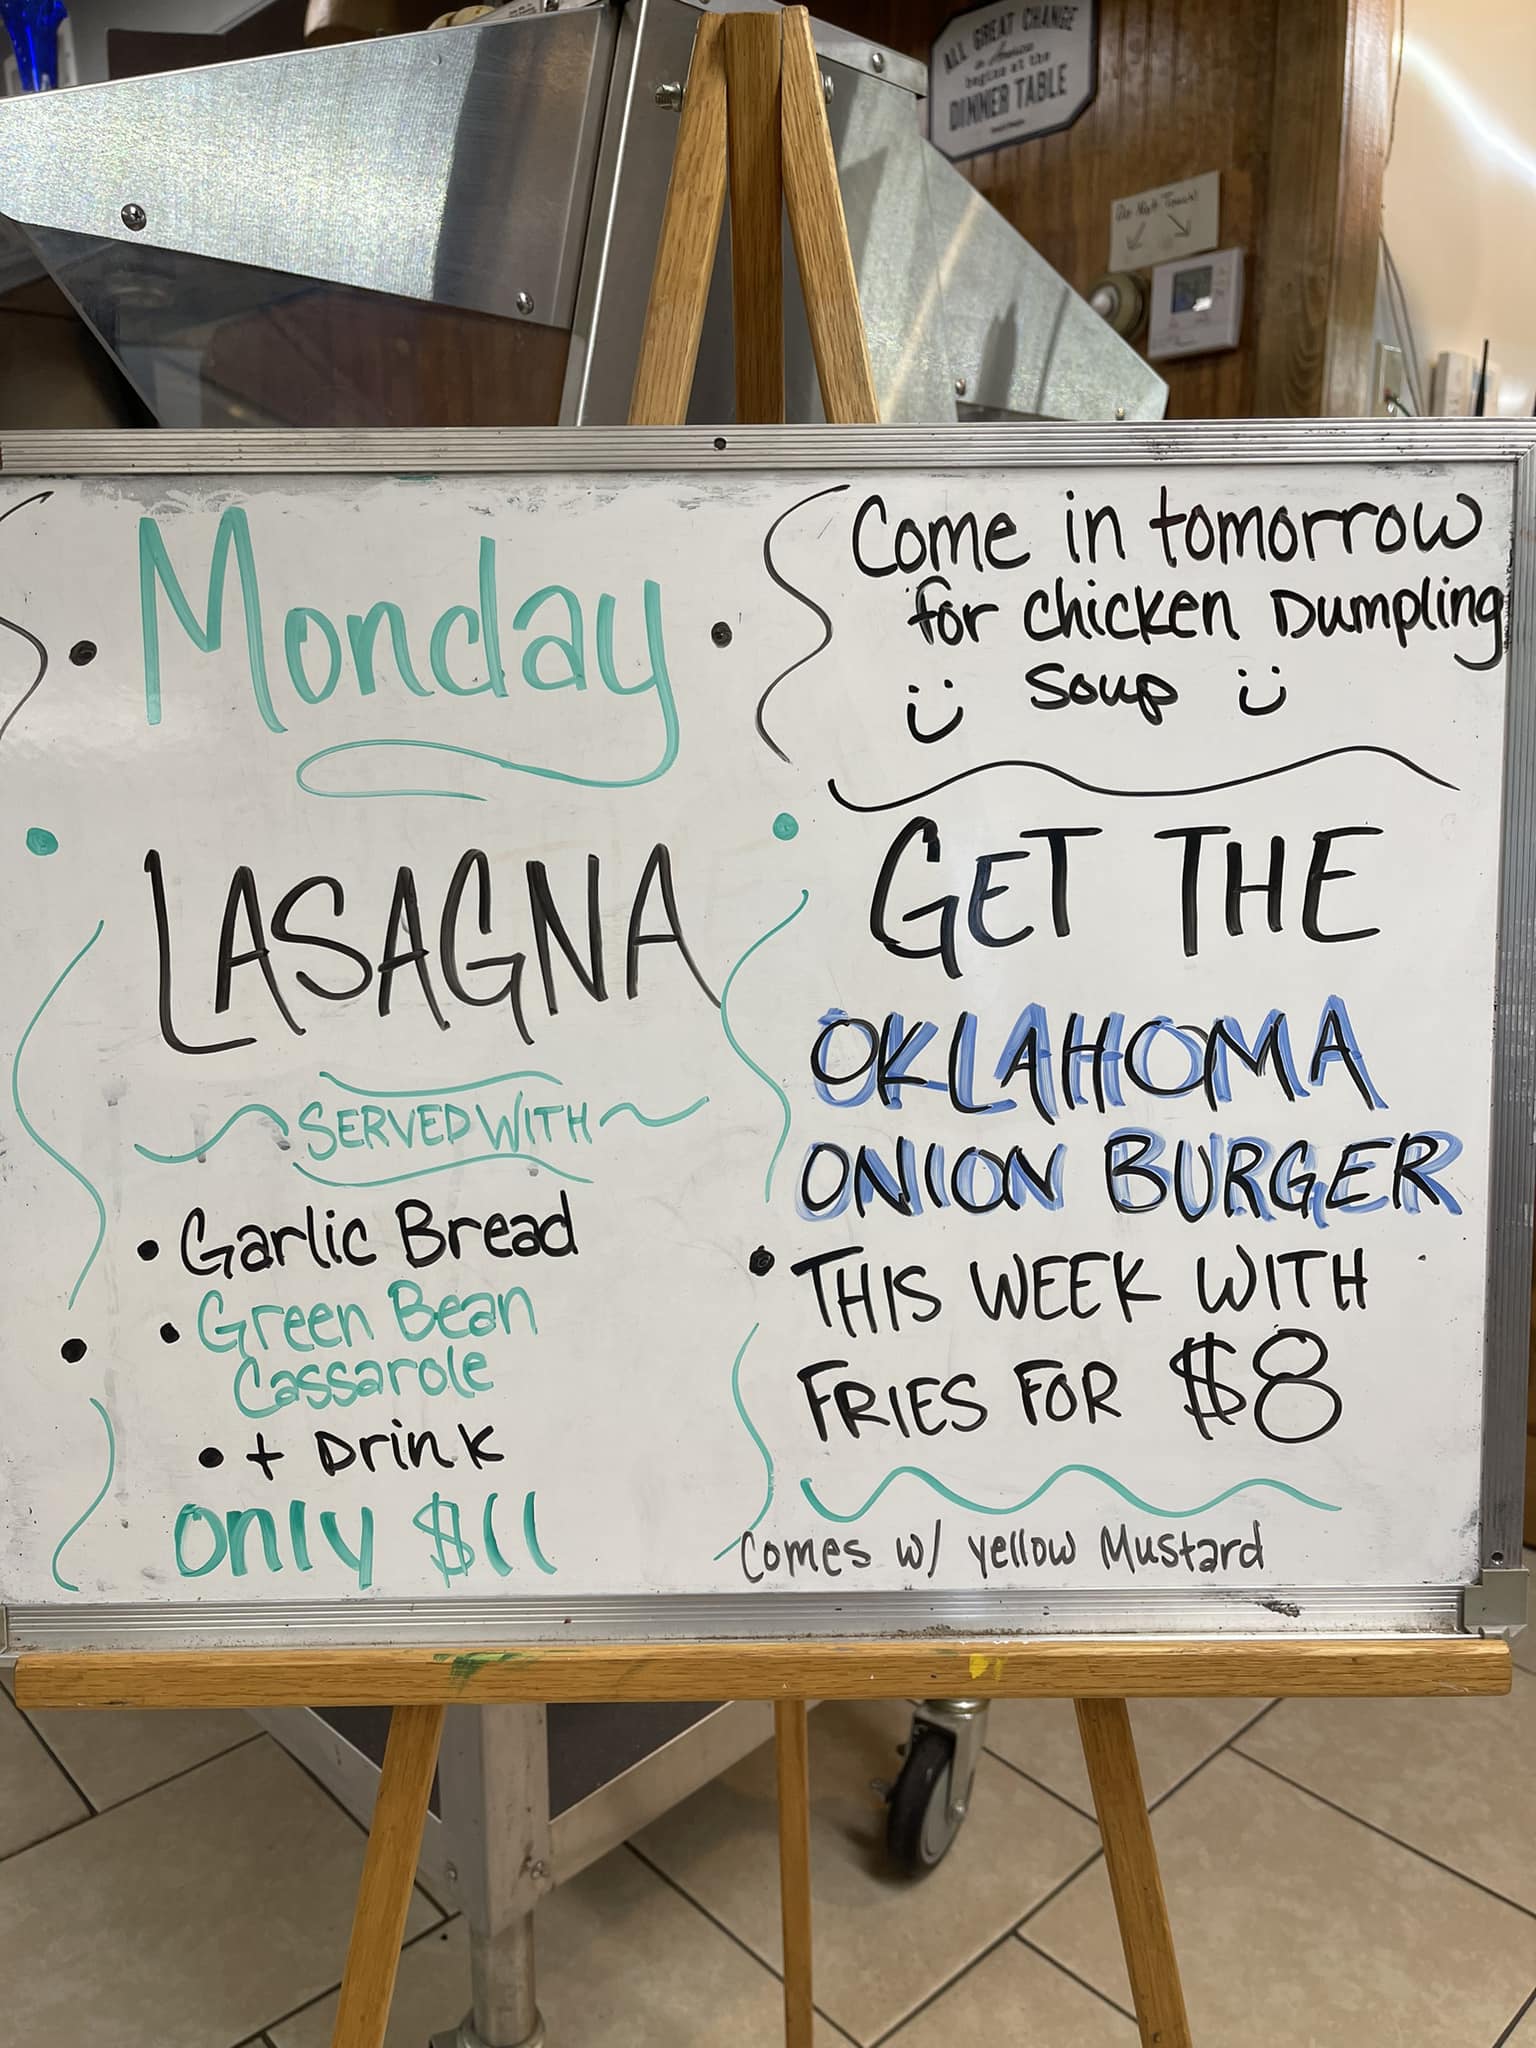 ALL GREAT CHANGE
in America
begins at the
DINNER TABLE
Do Not Touch!
Monday
LASAGNA
SERVED WITH
• Garlic Bread
• Green Bean
Cassarole
• + Drink
only $11
Come in tomorrow
for chicken Dumpling
Soup
GET THE
OKLAHOMA
ONION BURGER
• THIS WEEK WITH
FRIES FOR $8
Comes w/ yellow Mustard